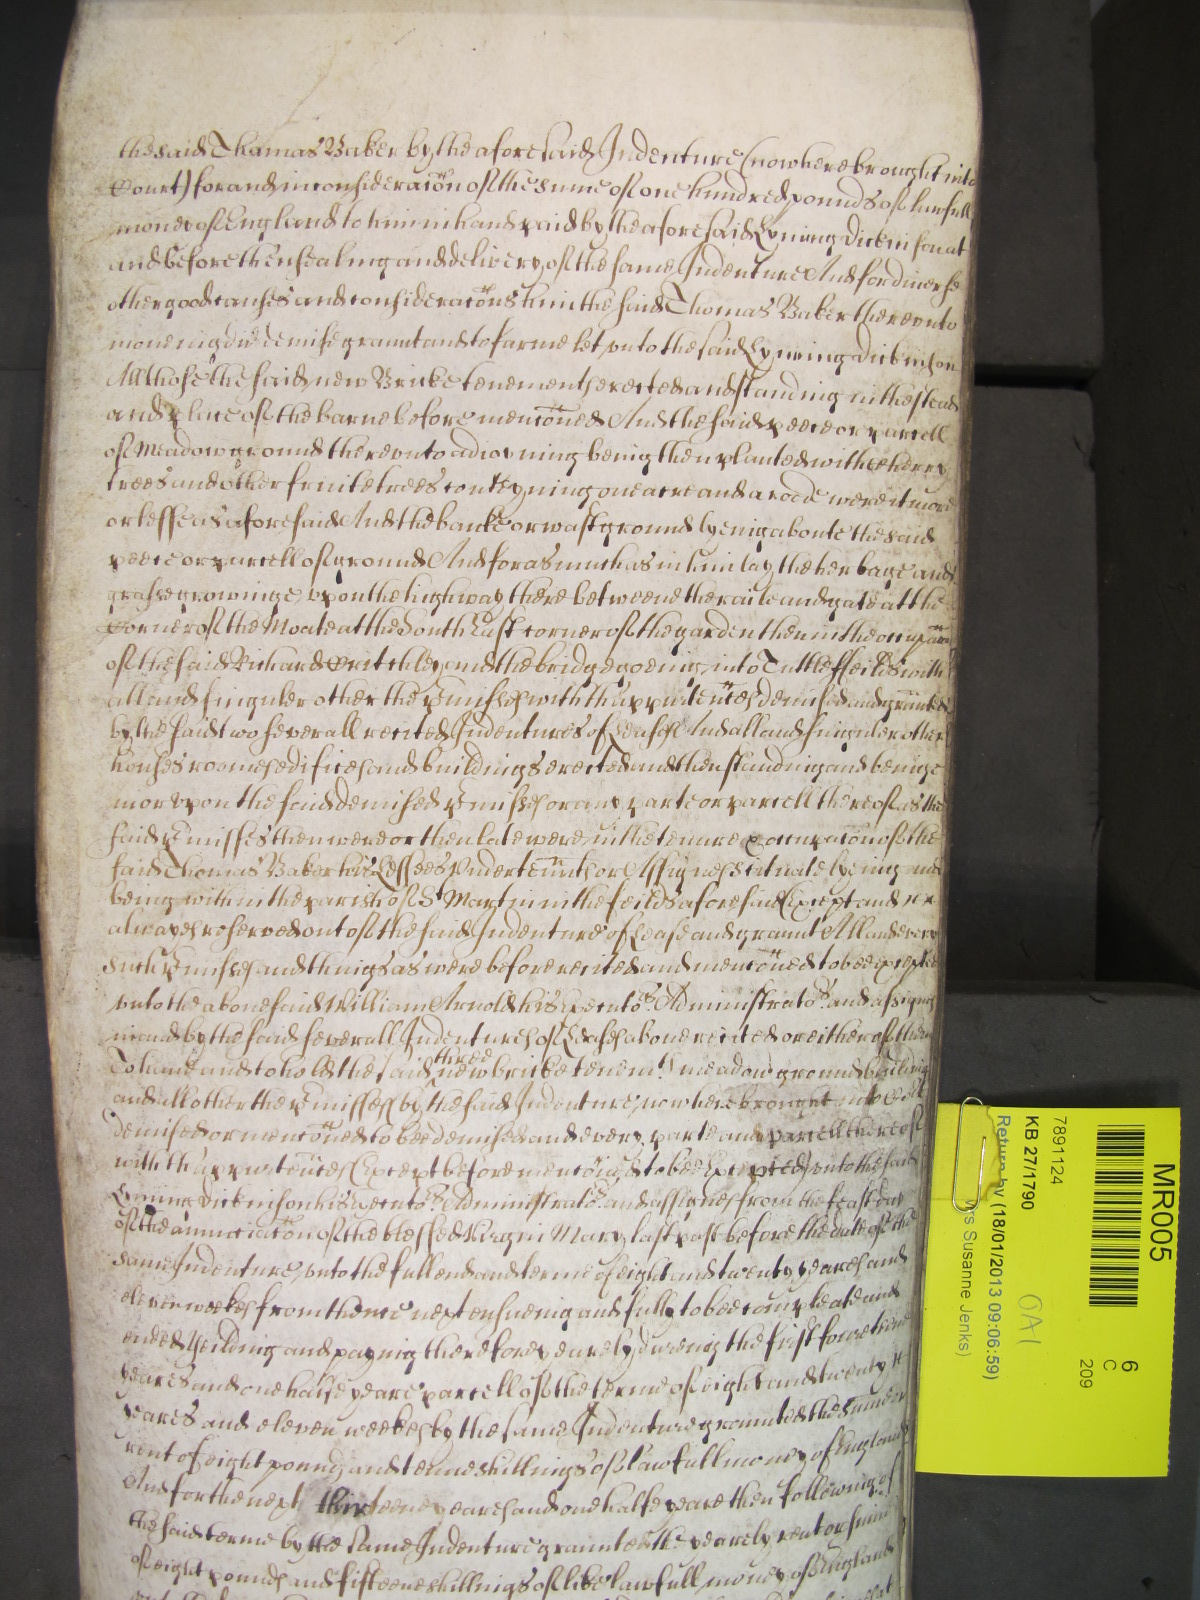 the said Thomas Baker by the aforesaid Indenture (now here brought into
Court) for and in consideracōn of the sume of one hundred pounds of lawfull
money of England to him in hand paid by the aforesaid Lyning Dickinson at
and before thensealing and delivery of the same Indenture And for diverse
other good causes and consideracōns him the said Thomas Baker therevnto
moveing did demise graunt and to farme let vnto the said Lyning Dickinson
All those the said new Bricke tenements erected and standing in the stead
and place of the barne before menc̄oned And the said peece or parcell
of Meadow ground therevnto adioyning being then planted with Cherry
trees and other fruite trees conteyning one acre and a roode were it more
or lesse as aforesaid And the bancke or wast ground lyeing aboute the said
peece or parcell of ground And for as much as in him lay the herbage and
grasse growinge vpon the high way there betweene the raile and gate at the
Corner of the Moate at the South East corner of the garden then in the occupac̄on
of the said Richard Critchley and the bridge goeing into Tuttle ffeilds with
all and singuler other the p̄misses with thappurtēnces demised and graunted
by the said two severall recited Indentures of Lease And all and singuler other
houses roomes edifices and buildings erected and then standing and being
in or vpon the said demised p̄misses or any parte or parcell thereof as the
said p̄misses then were or then late were in the tenure & occupac̄on of the
said Thomas Baker his Lessees Vndertennts or Assignes scituate lyeing and
being within the parish of St Martin in the feilds aforesaid (Except and
alwayes reserved out of the said Indenture of Lease and graunt All and every
such p̄misses and things as were before recited and menc̄oned to bee excepted
vnto the abovesaid William Arnold his Executors Administrators and assignes
in and by the said severall Indentures of Leases above recited or either of them
To have and to hold the said three new bricke tenemts meadow ground building
and all other the p̄misses by the said Indenture now here brought into Court
demised or menc̄oned to bee demised and every parte and parcell thereof
with thappurtēnces (Except before menc̄oned to bee Excepted) vnto the said
Lyning Dickinson his Executors Administrators and assignes from the feast day
of the annunciac̄on of the blessed Virgin Mary last past before the date of the
same Indenture vnto the full end and terme of eight and twenty yeares and
eleven weekes from thence next ensueing and fully to bee compleate and
ended Yeilding and paying therefore yearely dureing the first fowerteene
yeares and one halfe yeare parcell of the terme of eight and twenty
yeares and eleven weekes by the same Indenture graunted the
rent of eight pounds and tenne shillings of lawfull money of England
And for the next thirteene yeares and one halfe yeare then following of
the said terme by the same Indenture graunted the yearely rent or summ
of eight pounds and fifteene shillings of like lawfull money of England
MR005
6
C
209
7891124
KB 27/1790
Return by (18/01/2013 09:06:59)
Susanne Jenks)